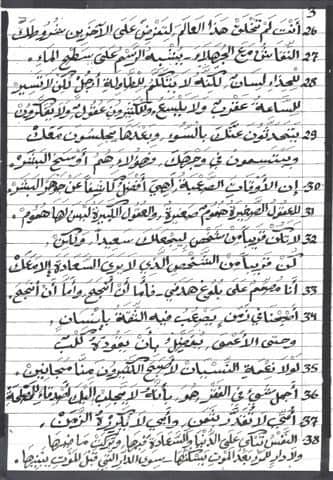 3
26 أنت لم تُخلق هذا العالم لتفرض على الآخرين شروطك
27 النقاش مع الجهلاء .. يشبه الرسم على سطح الماء.
28 للجدار لسان، لكنه لا يتكلم للطاولة أرجل لكن لا تسير
للساعة عقرب ولا يلسع، وللكثيرون عقول ولا يفكرون
29 يتحدثون عنك بالسوء وبعدها يجلسون معك
ويبتسمون في وجهك وهؤلاء هم أوسخ البشر.
30 إن الأوقات الصعبة هي أفضل كاشفاً عن جوهر البشر.
31 للعقول الصغيرة هموم صغيرة. والعقول الكبيرة ليس لها هموم.
32 لا تكن قريباً من شخص ليجعلك سعيداً. ولكن
كن قريباً من الشخص الذي لا يرى السعادة إلا معك
33 أنا مصمم على بلوغ هدفي - فإما أن أنجح وإما أن أنجح.
34 أصبحنا في زمن يصعب فيه الثقة بإنسان
وحتى الأعمى يفضل بأن يقوده كلب
35 لولا نعمة النسيان لأصبح الكثيرون منا مجانين.
36 أجمل شيء في الفقر هو بأنه لا يجلب إليك أصدقاء للمصلحة
37 أمي لا تقدر بثمن. وأبي لا يكرره الزمن.
38 النفس تبكي على الدنيا والسعادة فيها وتركت ما فيها
ولا دار للمرء بعد الموت يسكنها. سوى الدار التي قبل الموت يبنيها.